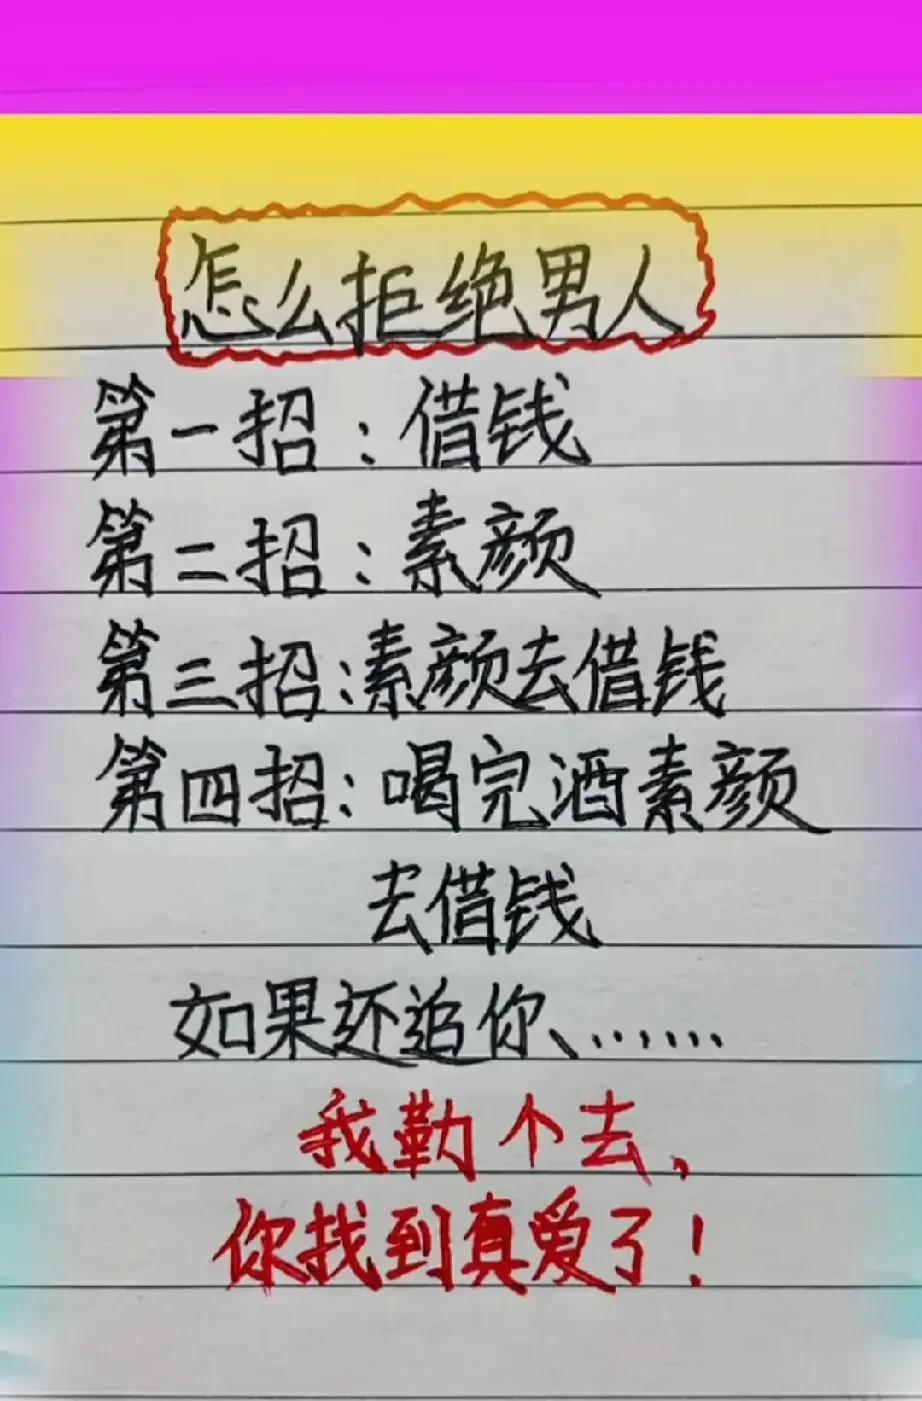 怎么拒绝男人
第一招：借钱
第二招：素颜
第三招：素颜去借钱
第四招：喝完酒素颜
去借钱
如果还追你、……
我勒个去，
你找到真爱了！